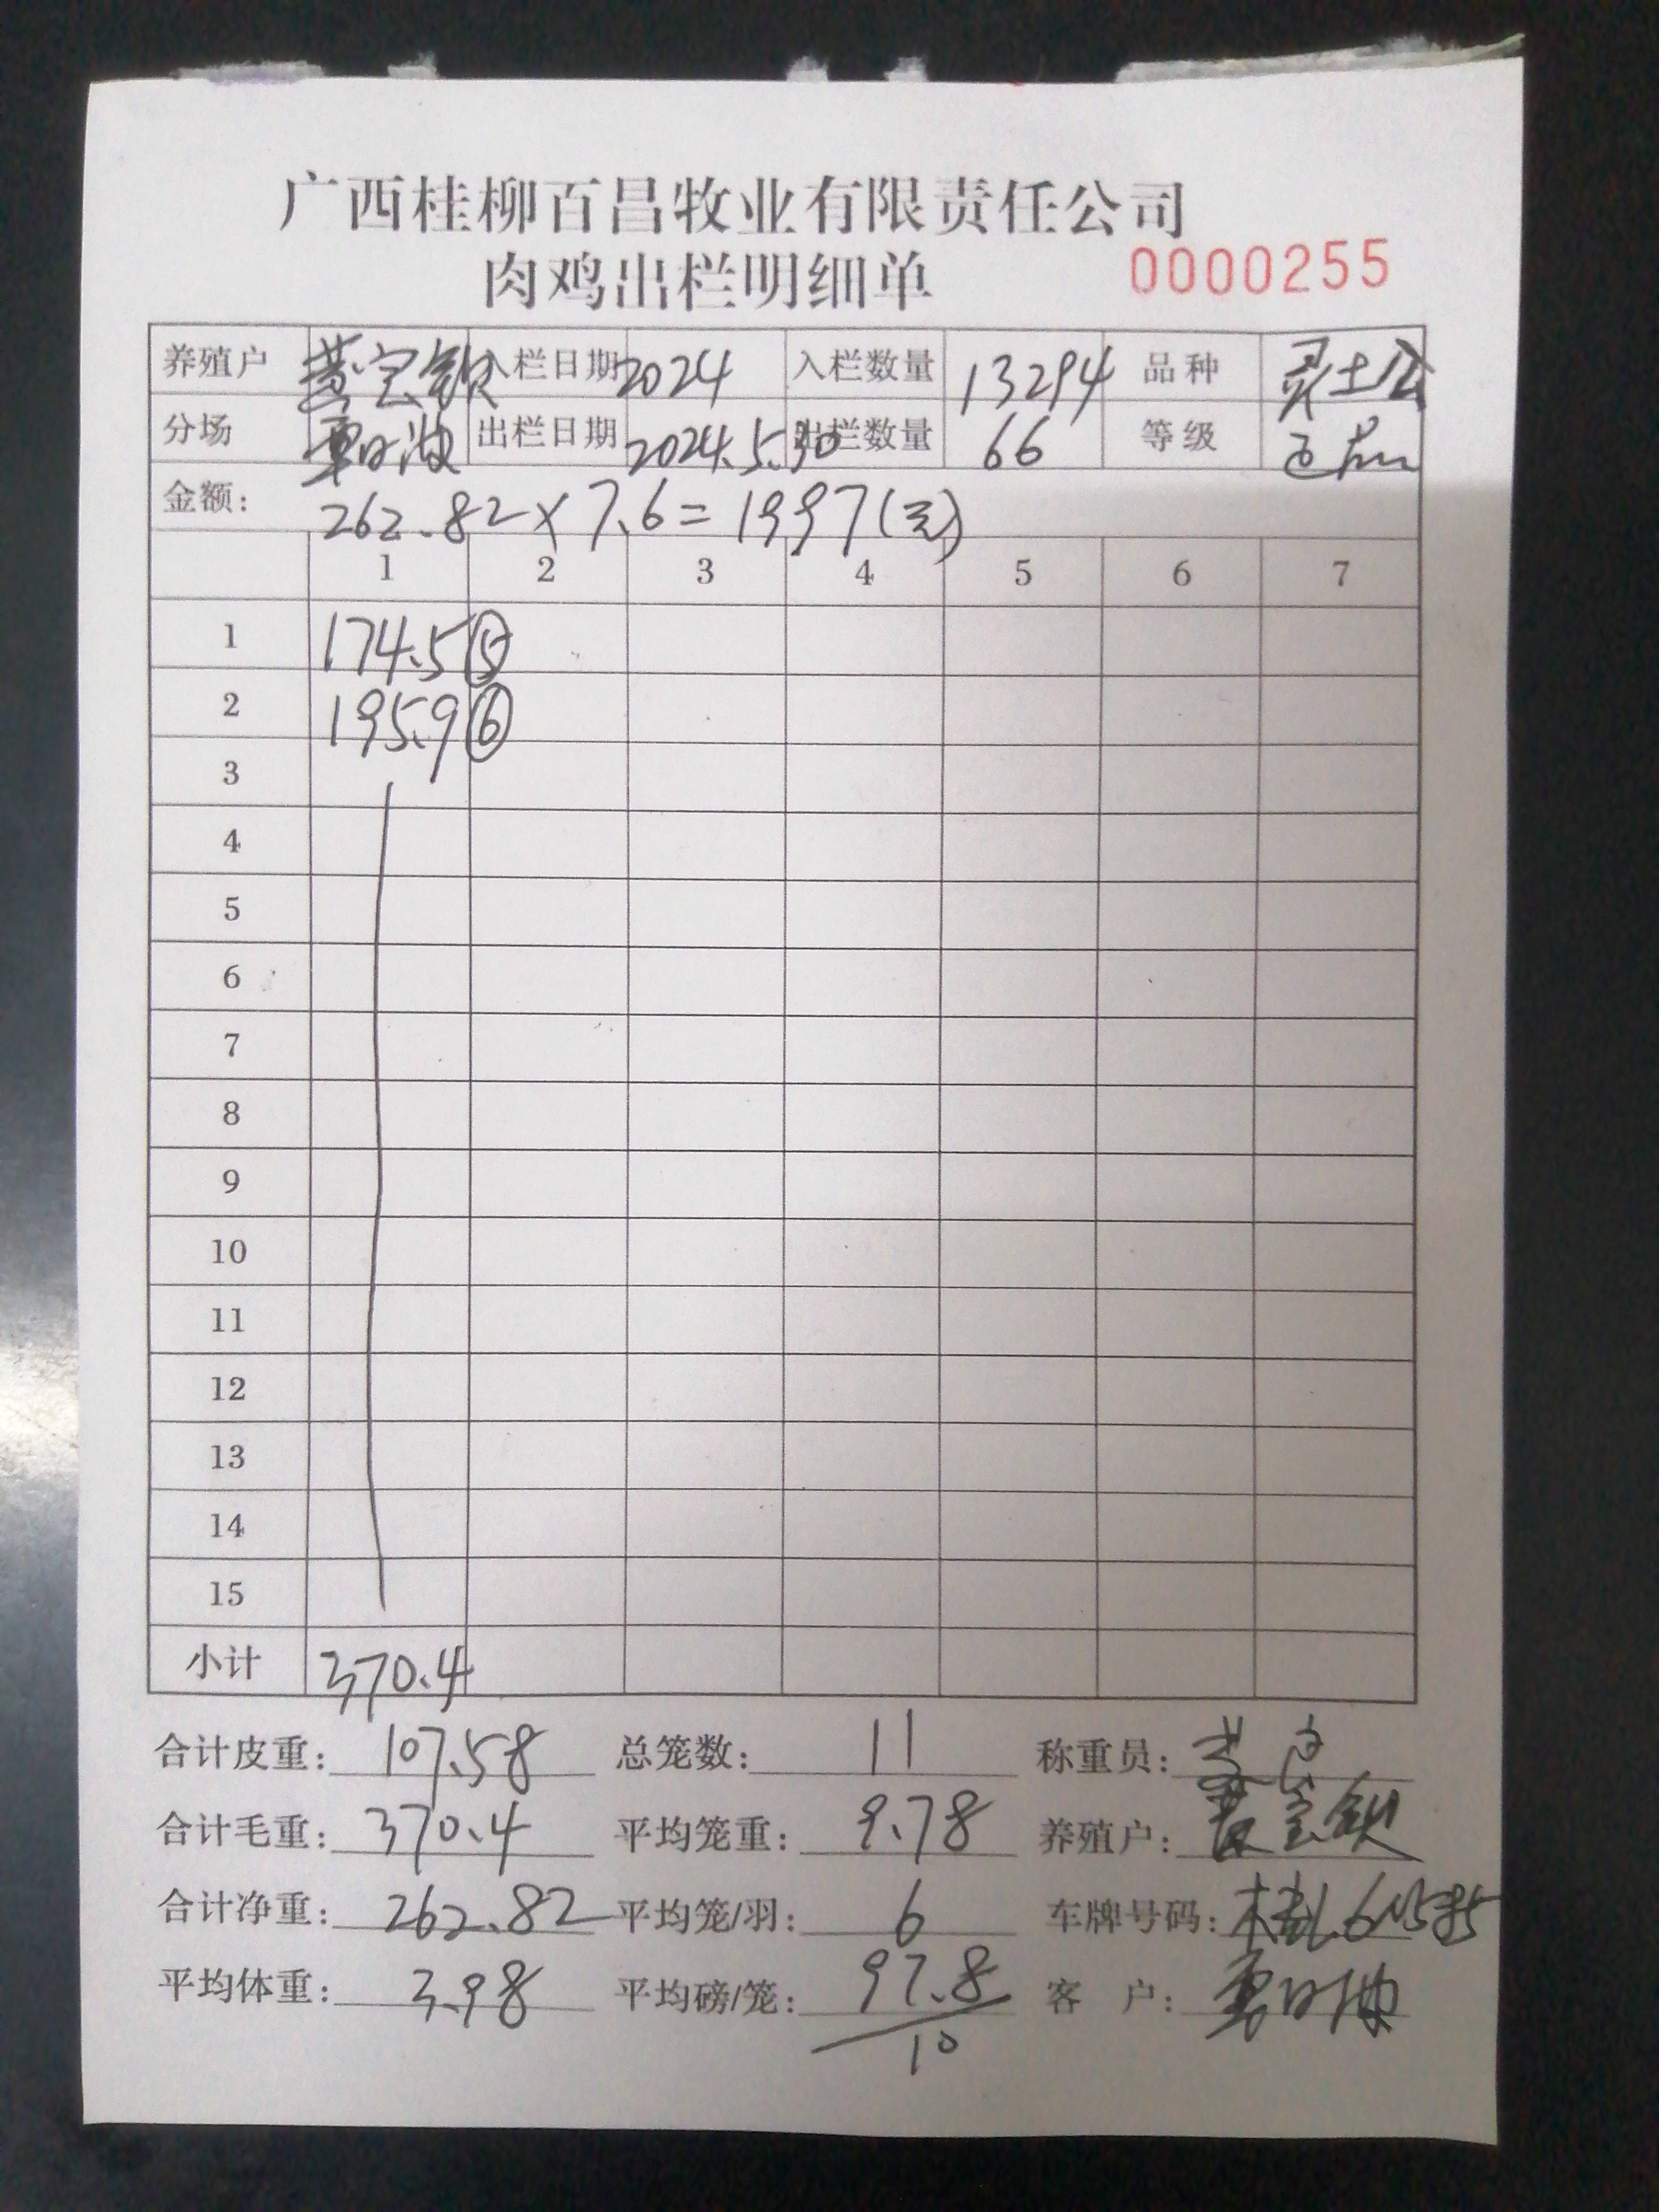 广西桂柳百昌牧业有限责任公司
肉鸡出栏明细单 0000255
养殖户 黄宝钦 入栏日期 2024 入栏数量 13294 品种 灵土公
分场 出栏日期 2024.5.30 出栏数量 66 等级
金额: 262.82×7.6=1997(元)
1 2 3 4 5 6 7
1 174.5⑤
2 195.9⑥
3
4
5
6
7
8
9
10
11
12
13
14
15
小计 370.4
合计皮重: 107.58 总笼数: 11 称重员:
合计毛重: 370.4 平均笼重: 9.78 养殖户: 黄宝钦
合计净重: 262.82 平均笼/羽: 6 车牌号码:
平均体重: 3.98 平均磅/笼: 97.8/10 客 户: